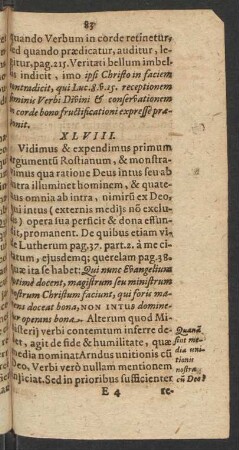 83
quando Verbum in corde retinetur,
sed quando prædicatur, auditur, le-
gitur, pag. 215. Veritati bellum imbel-
us indicit, imo ipsi Christo in faciem
contradicit, qui Luc. 8. ℣. 15. receptionem
seminis Verbi Divini & conservationem
in corde bono fructificationi expressè præ-
mit.
XLVIII.
Vidimus & expendimus primum
argumentũ Rostianum, & monstra-
vimus qua ratione Deus intus seu ab
intra illuminet hominem, & quate-
nus omnia ab intra, nimirũ ex Deo,
qui intus (externis medijs nõ exclu-
sis) opera sua perficit & dona efflan-
dit, promanent. De quibus etiam vi-
de Lutherum pag. 37. part. 2. à me ci-
tatum, ejusdemq; querelam pag. 38.
quæ ita se habet: Qui nunc Evangelium
optimè docent, magistrum seu ministrum
nostrum Christum faciunt, qui foris ma-
nens doceat bona, NON INTUS domine-
tur operans bona. Alterum quod Mi-
nisterij verbi contemtum inferre de-
bet, agit de fide & humilitate, quæ
media nominat Arndus unitionis cũ
Deo. Verbi verò nullam mentionem
injiciat. Sed in prioribus sufficienter
E 4 re-
Quænã
sint me-
dia uni-
tionis
nostræ
cũ Deo?